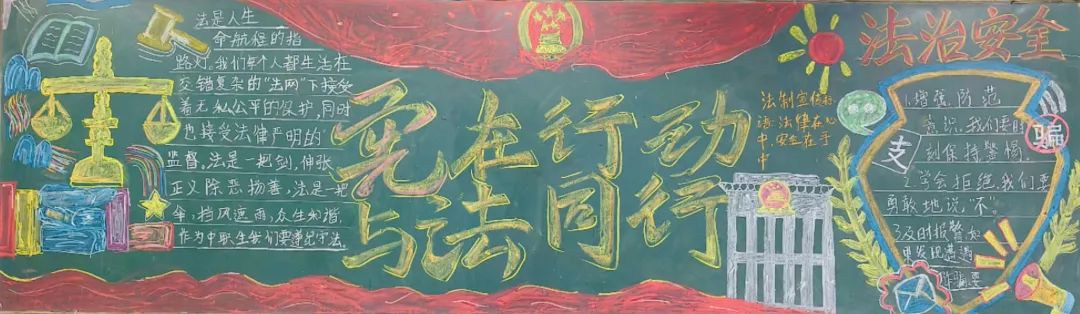 法是人生
命航程的指
路灯。我们每个人都生活在
交错复杂的"法网"下接受
着无私公平的保护,同时
也接受法律严明的
监督。法是一把剑,伸张
正义除恶扬善,法是一把
伞,挡风遮雨,众生和谐.
作为中职生我们要遵纪守法.
宪在行动
与法同行
法制宣传标
语:法律在心
中,安全在手
中
法治安全
1.增强防范
意识。我们要时
刻保持警惕。
2.学会拒绝。我们要
勇敢地说"不"。
3.及时报警如
果发现遭遇
诈骗要
支
骗